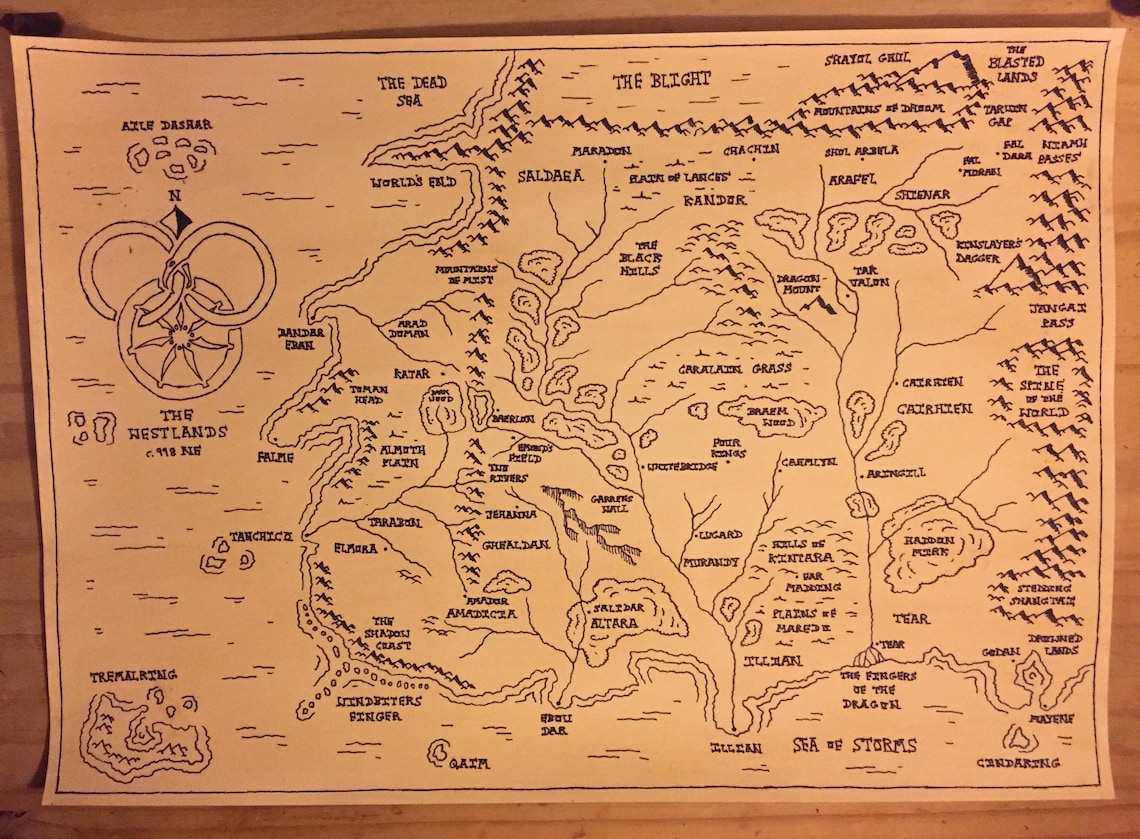 THE DEAD
SEA
THE BLIGHT
SHAYOL GHUL
THE
BLASTED
LANDS
MOUNTAINS OF DHOOM
TARWIN
GAP
AILE DASHAR
MARADON
CHACHIN
SHOL ARBELA
FAL
DARA
NIAMH
PASSES
FAL
MORAN
WORLD'S END
SALDAEA
PLAIN OF LANCES
KANDOR
ARAFEL
SHIENAR
N
KINSLAYER'S
DAGGER
THE
BLACK
HILLS
MOUNTAINS
OF MIST
DRAGON-
MOUNT
TAR
VALON
JANGAI
PASS
BANDAR
EBAN
ARAD
DOMAN
KATAR
CARALAIN GRASS
THE
SPINE
OF THE
WORLD
TOMAN
HEAD
DARK
WOOD
CAIRHIEN
CAIRHIEN
THE
WESTLANDS
c. 998 NE
BAERLON
BRAEM
WOOD
FALME
ALMOTH
PLAIN
EMOND'S
FIELD
FOUR
KINGS
WHITEBRIDGE
CAEMLYN
THE
RIVERS
ARINGILL
GARRENS
WALL
JEHANNA
TANCHICO
TARABON
ELMORA
GHEALDAN
LUGARD
MURANDY
HILLS OF
KINTARA
HADDON
MIRK
HAR
MADDING
STEDDING
SHANGTAI
AMADOR
AMADICIA
SALIDAR
ALTARA
PLAINS OF
MAREDO
TEAR
THE
SHADOW
COAST
TEAR
ILLIAN
GODAN
DROWNED
LANDS
TREMALKING
WINDBITERS
FINGER
THE FINGERS
OF THE
DRAGON
EBOU
DAR
MAYENE
ILLIAN
SEA OF STORMS
QAIM
CINDAKING